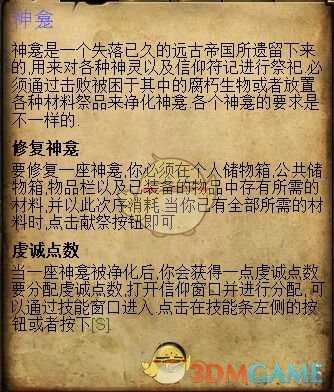 神龛
神龛是一个失落已久的远古帝国所遗留下来
的,用来对各种神灵以及信仰符记进行祭祀.必
须通过击败被困于其中的腐朽生物或者放置
各种材料祭品来净化神龛.各个神龛的要求是
不一样的.
修复神龛
要修复一座神龛,你必须在个人储物箱,公共储
物箱,物品栏以及已装备的物品中存有所需的
材料,并以此次序消耗.当你已有全部所需的材
料时,点击献祭按钮即可.
虔诚点数
当一座神龛被净化后,你会获得一点虔诚点数.
要分配虔诚点数,打开信仰窗口并进行分配,可
以通过技能窗口进入.点击在技能条左侧的按
钮或者按下[S].
3DMGAME